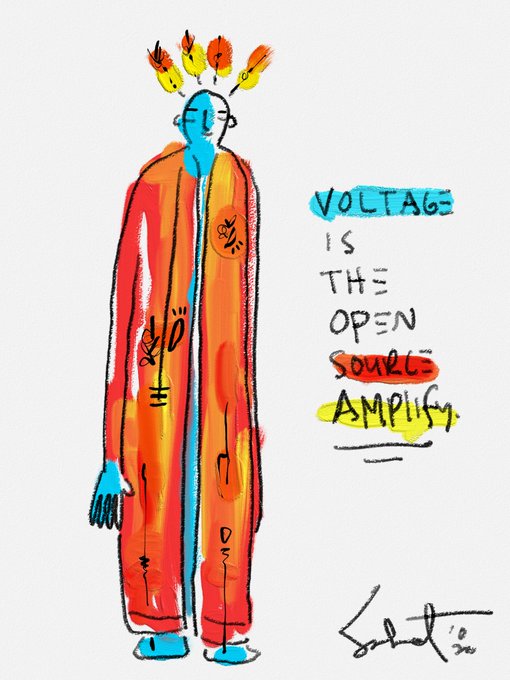 VOLTAGE
IS
THE
OPEN
SOURCE
AMPLIfy.
'020